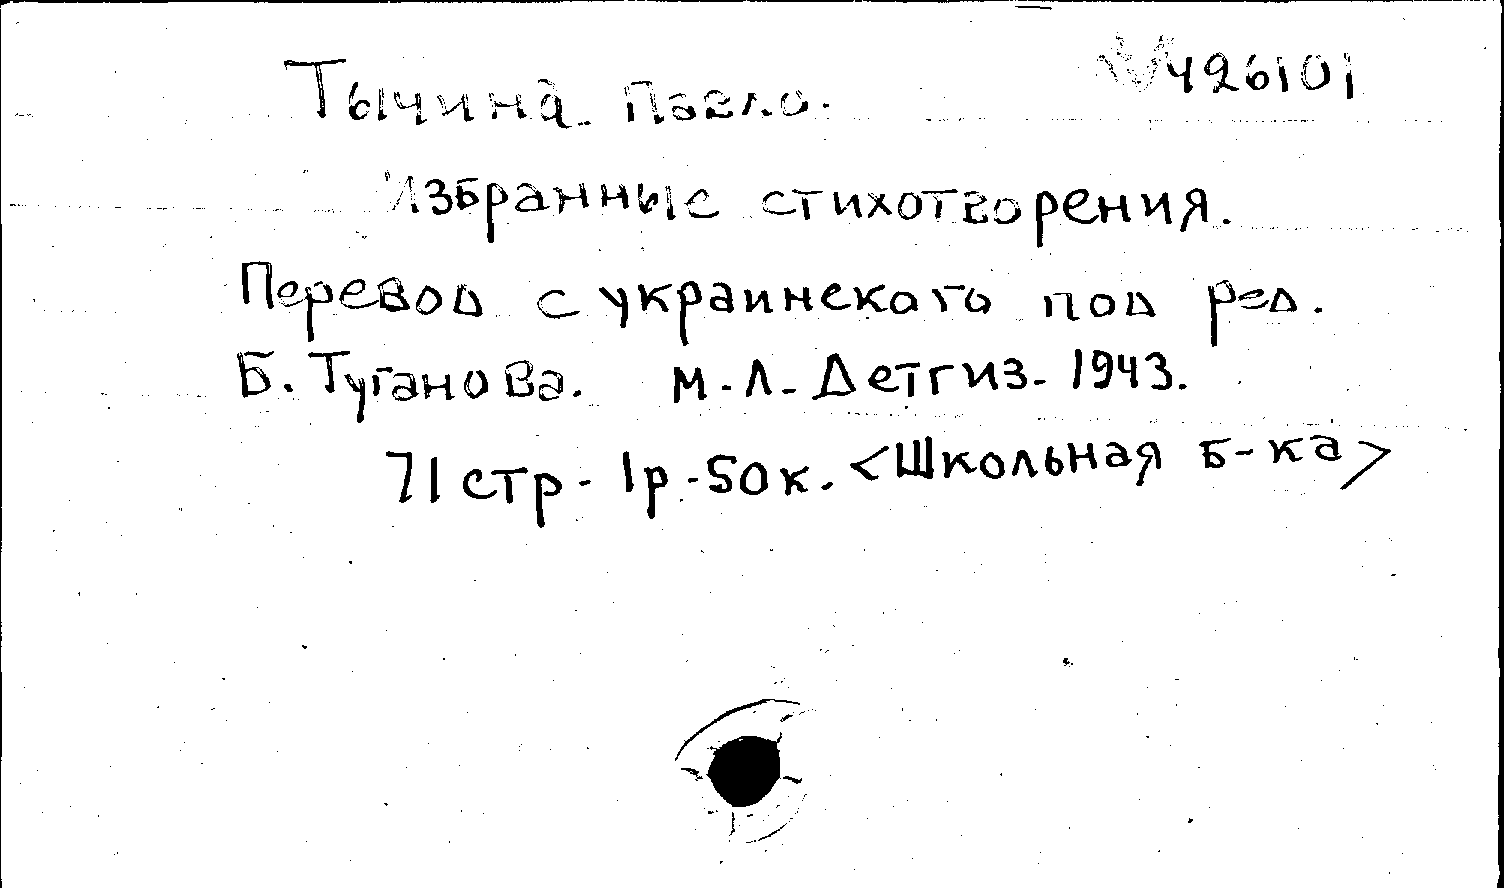 426101
Тычина. Павло.
Избранные стихотворения.
Перевод с украинского под ред.
Б. Туганова. М.-Л. Детгиз. 1943.
71 стр. 1р.-50к. <Школьная б-ка>